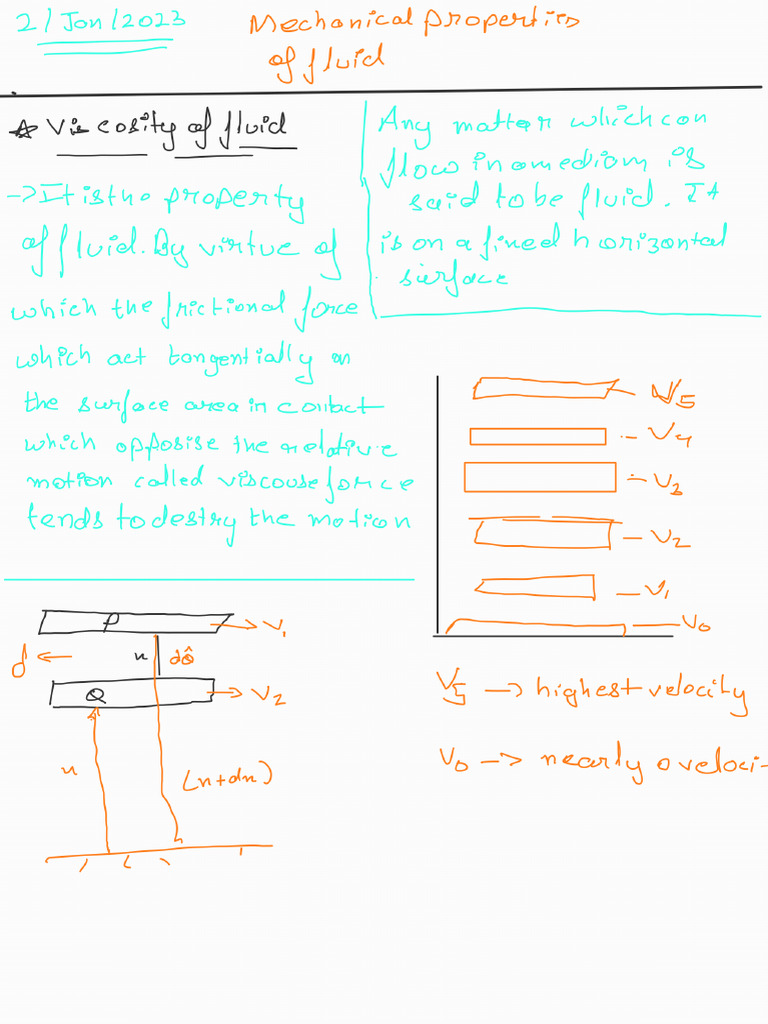 21 Jan 12023
Mechanical properties
of fluid
Viscosity of fluid
→ It is the property
of fluid. By virtue of
which the frictional force
which act tangentially on
the surface area in contact
which opposise the relative
motion called viscouse force
tends to destry the motion
Any matter which can
flow in a mediom is
said to be fluid. It
is on a fined horizontal
surface
V5
V4
V3
V2
V1
V0
P → V1
x
Q → V2
x
(x+dx)
V5 → highest velocity
V0 → nearly 0 veloci-